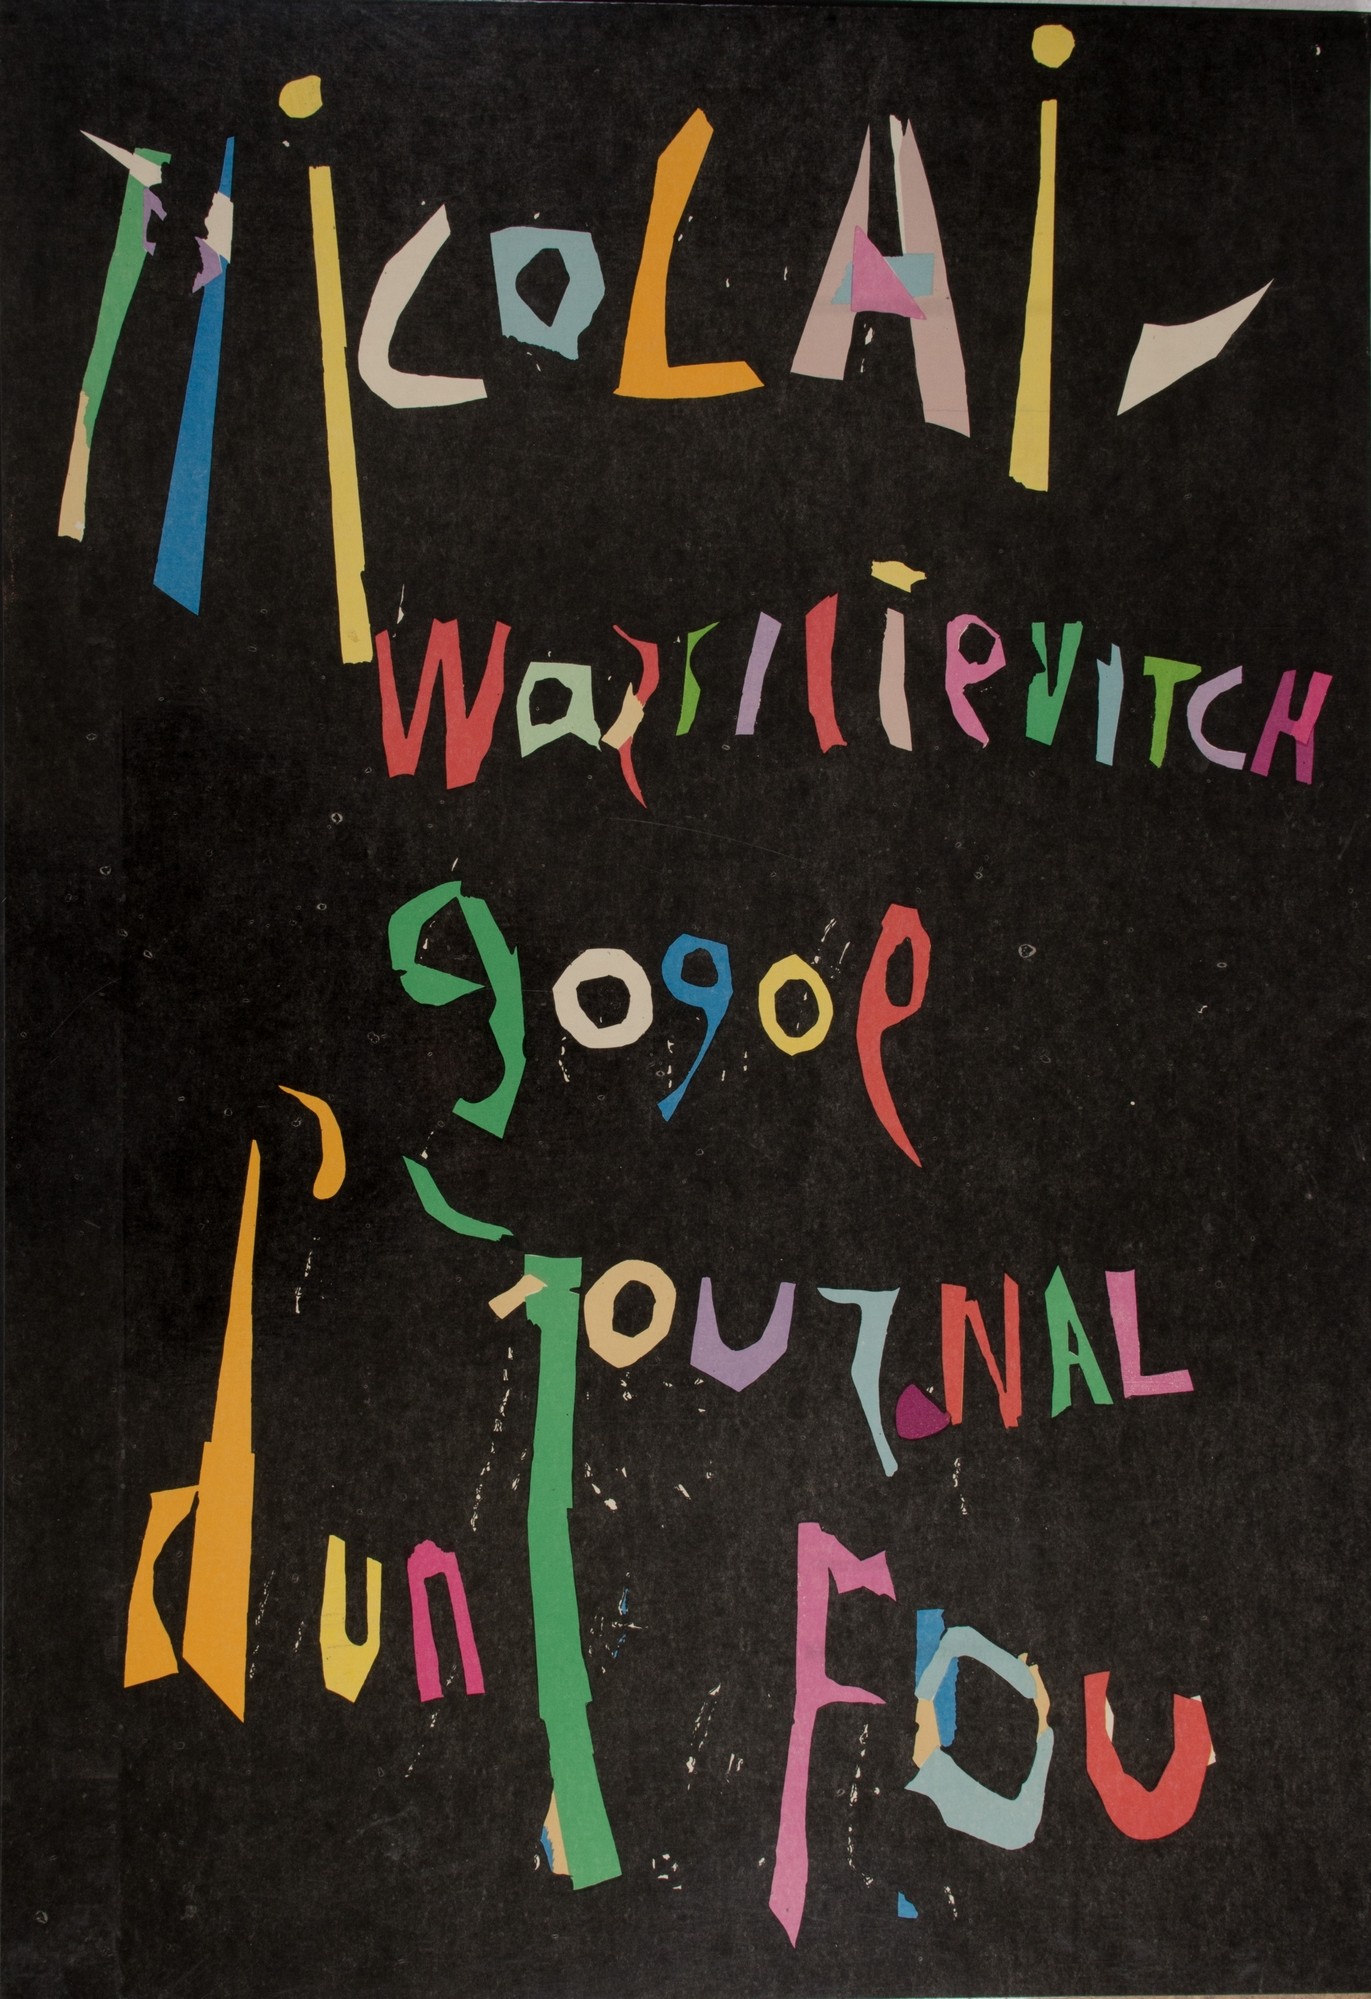 NicoLAi -
WassilieVITCH
gogol
JOURNAL
d'un FOU